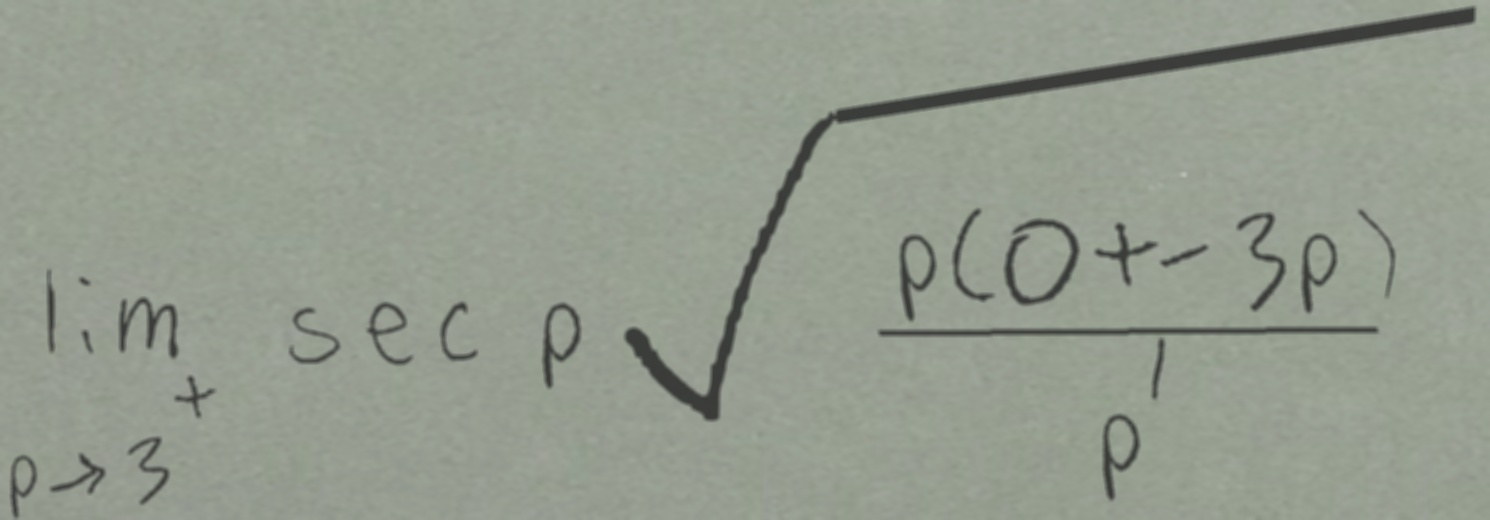 \lim_{p \to 3^+} \sec p \sqrt{\frac{p(0+-3p)}{p^1}}